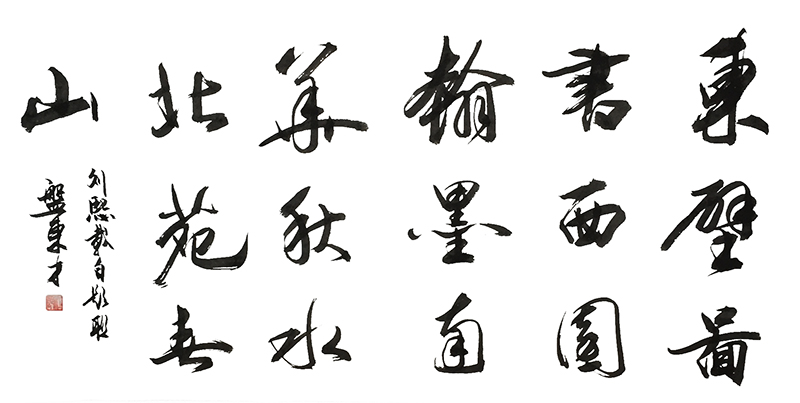 東壁圖
書西園
翰墨南
華秋水
北苑春
山
刘熙載自題联
盤東才